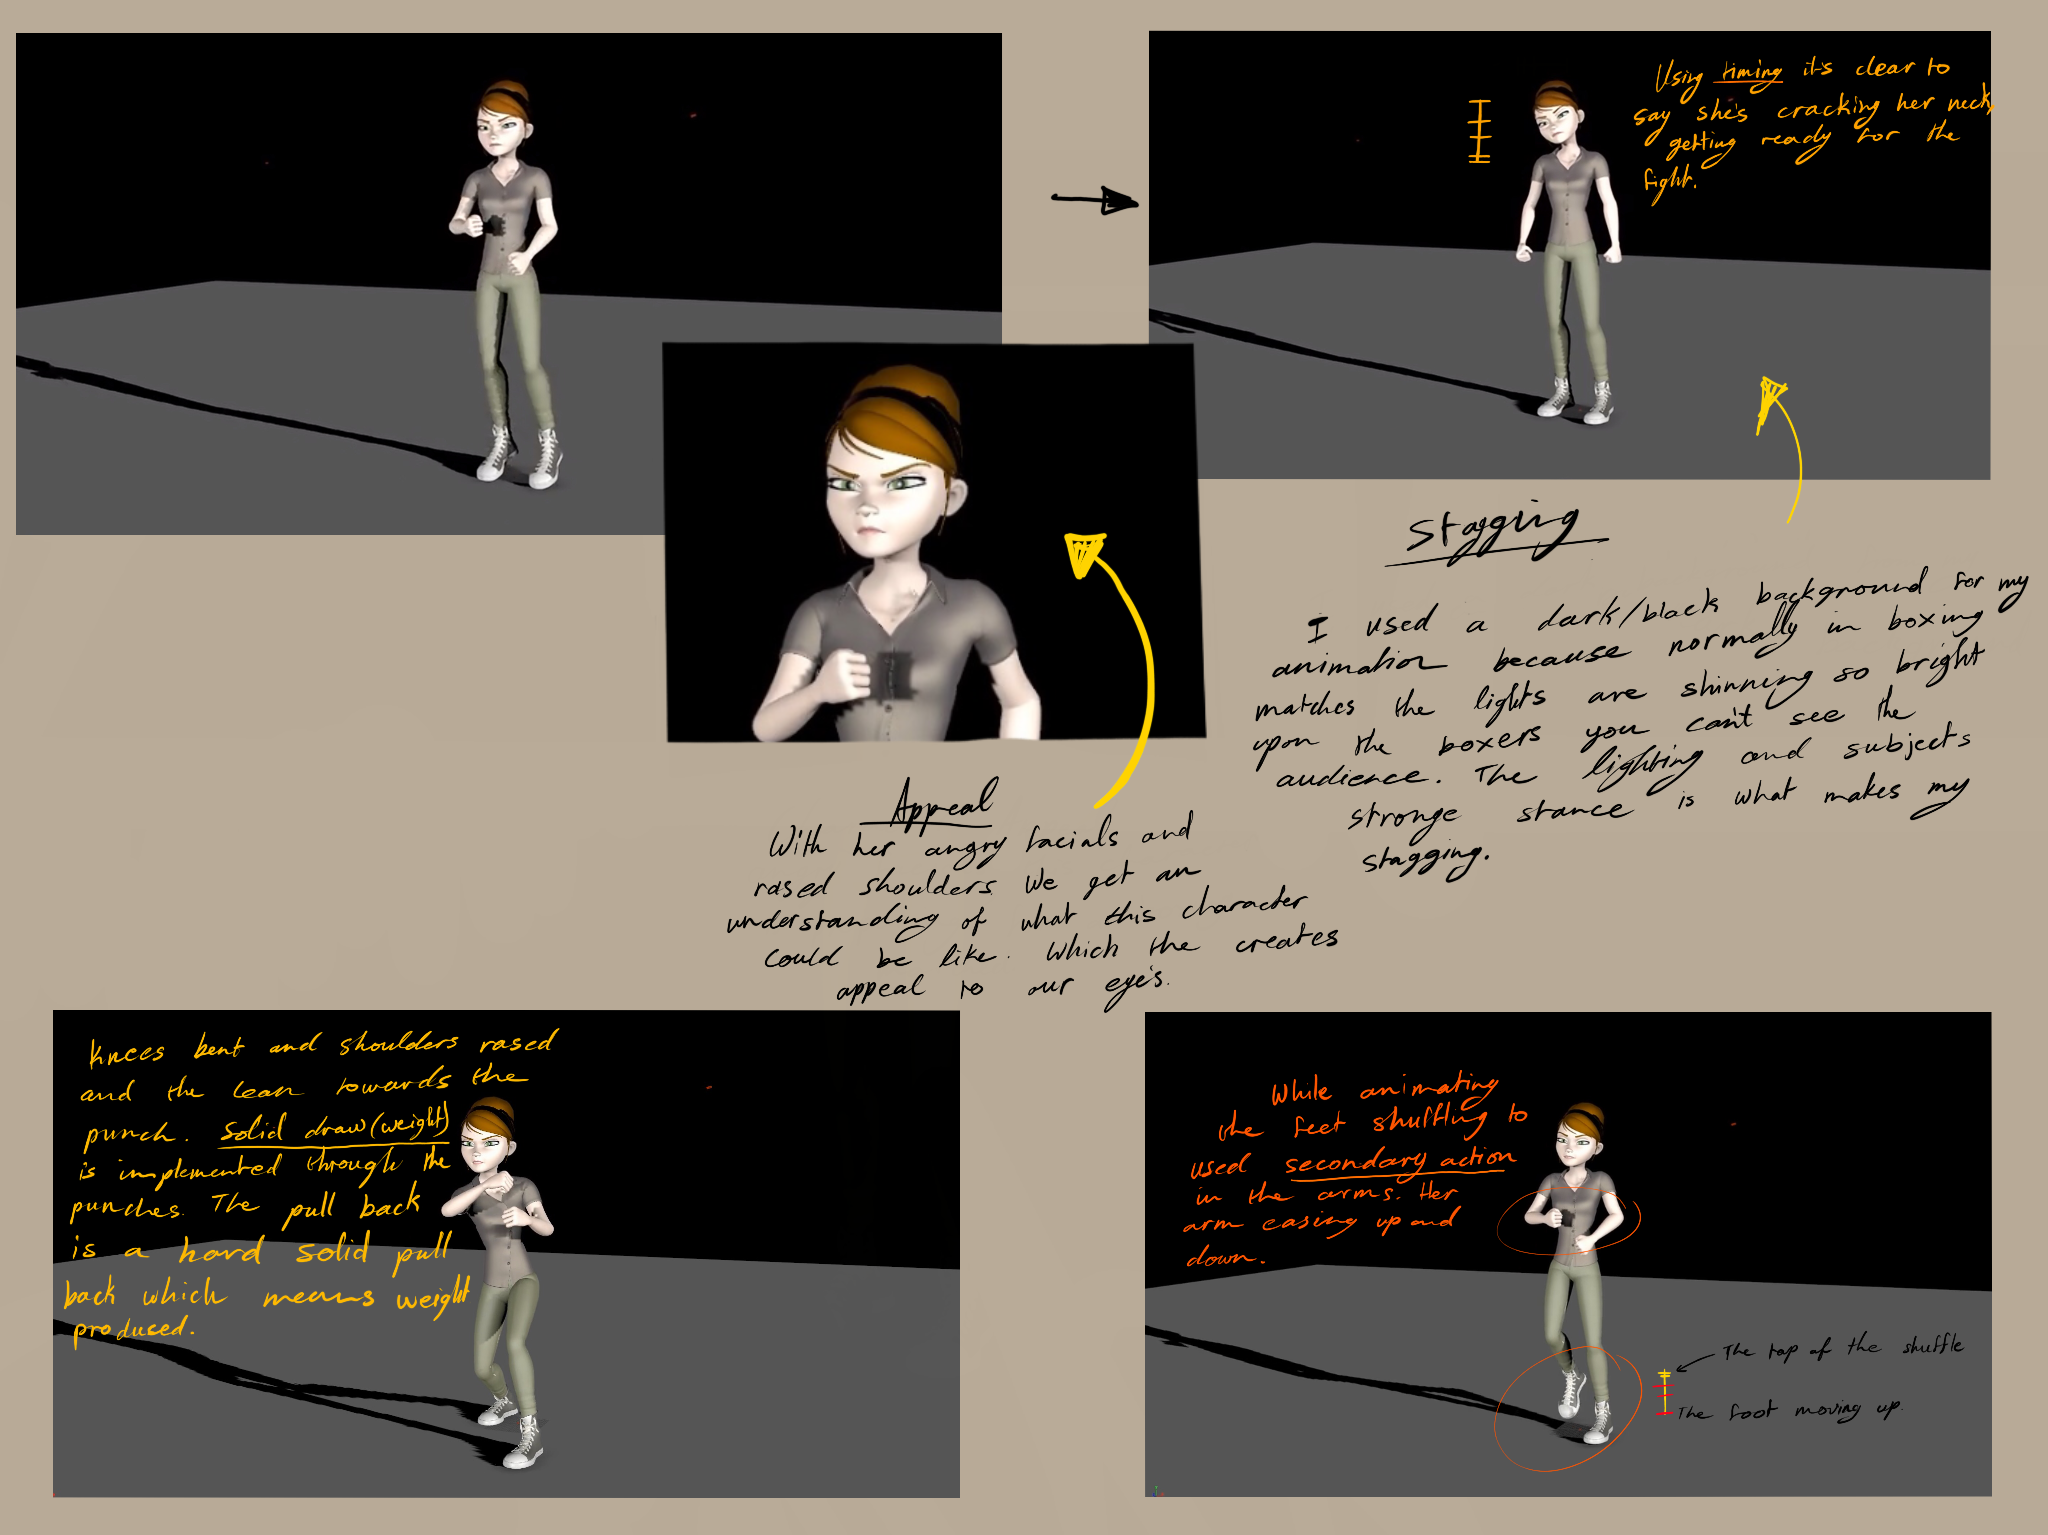 Using timing it's clear to
say she's cracking her neck,
getting ready for the
fight.
Stagging
I used a dark/black background for my
animation because normally in boxing
matches the lights are shinning so bright
upon the boxers you can't see the
audience. The lighting and subjects
stronge stance is what makes my
stagging.
Appeal
With her angry facials and
rased shoulders. We get an
understanding of what this character
could be like. Which the creates
appeal to our eye's.
Knees bent and shoulders rased
and the lean towards the
punch. Solid draw (weight)
is implemented through the
punches. The pull back
is a hard solid pull
back which means weight
produced.
While animating
the feet shuffling to
used secondary action
in the arms. Her
arm easing up and
down.
The top of the shuffle
The foot moving up.